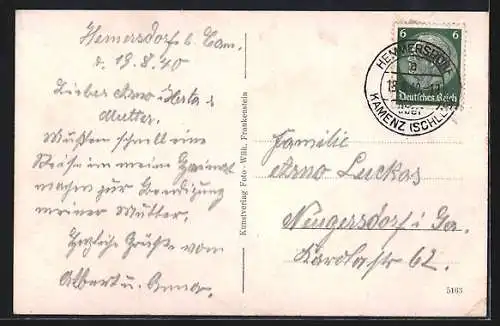 Hemersdorf b. Cam.
d. 19.8.40
Lieber Arno Herta &
Mutter.
Mußten schnell eine
Reise in meine Heimat
machen zur Beerdigung
meiner Mutter.
Herzliche Grüße von
Albert u. Anna.
Kunstverlag Foto-Wilk, Frankenstein
6 6
Deutsches Reich
HEMMERSDORF
KAMENZ (SCHLES)
über
Familie
Arno Luckas
Neugersdorf i. Sa.
Karolastr 62.
5163